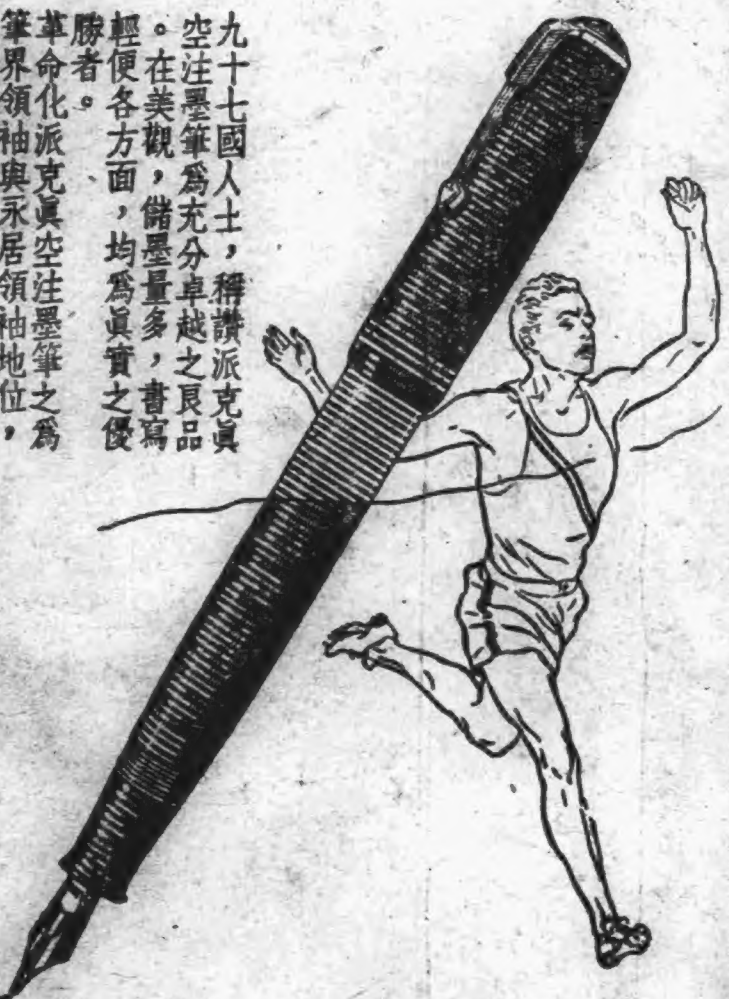 九十七國人士，稱讚派克眞
空注墨筆爲充分卓越之良品
。在美觀，儲墨量多，書寫
輕便各方面，均爲眞實之優
勝者。
革命化派克眞空注墨筆之爲
筆界領袖與永居領袖地位，